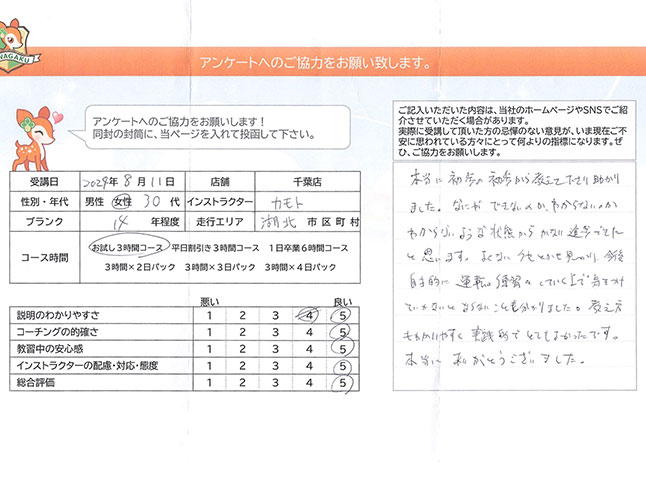 WAGAKU
アンケートへのご協力をお願い致します。
アンケートへのご協力をお願いします！
同封の封筒に、当ページを入れて投函して下さい。
受講日 2024年 8月 11日 店舗 千葉店
性別・年代 男性 女性 30代 インストラクター カモト
ブランク 14 年程度 走行エリア 湖北 市区町村
コース時間 お試し3時間コース 平日割引き3時間コース 1日卒業6時間コース
3時間×2日パック 3時間×3日パック 3時間×4日パック
悪い 良い
説明のわかりやすさ 1 2 3 4 5
コーチングの的確さ 1 2 3 4 5
教習中の安心感 1 2 3 4 5
インストラクターの配慮・対応・態度 1 2 3 4 5
総合評価 1 2 3 4 5
ご記入いただいた内容は、当社のホームページやSNSでご紹
介させていただく場合があります。
実際に受講して頂いた方の忌憚のない意見が、いま現在ご不
安に思われている方々にとって何よりの指標になります。ぜ
ひ、ご協力をお願します。
本当に初歩の初歩から教えて下さり助かり
ました。なにができないのか、わからないのか
わからないような状態から かない進歩でした
と思います。よくない くせとかも見つかり、今後
自主的に運転の練習をしていく上で気をつけ
ていかないとならないことも分かりました。教え方
もわかりやすく実践的でとてもよかったです。
本当にありがとうございました。